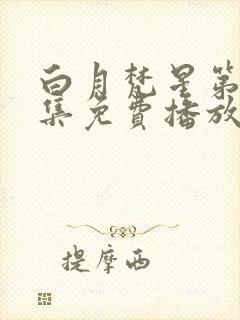 白月梵星第
集免费播放
提摩西